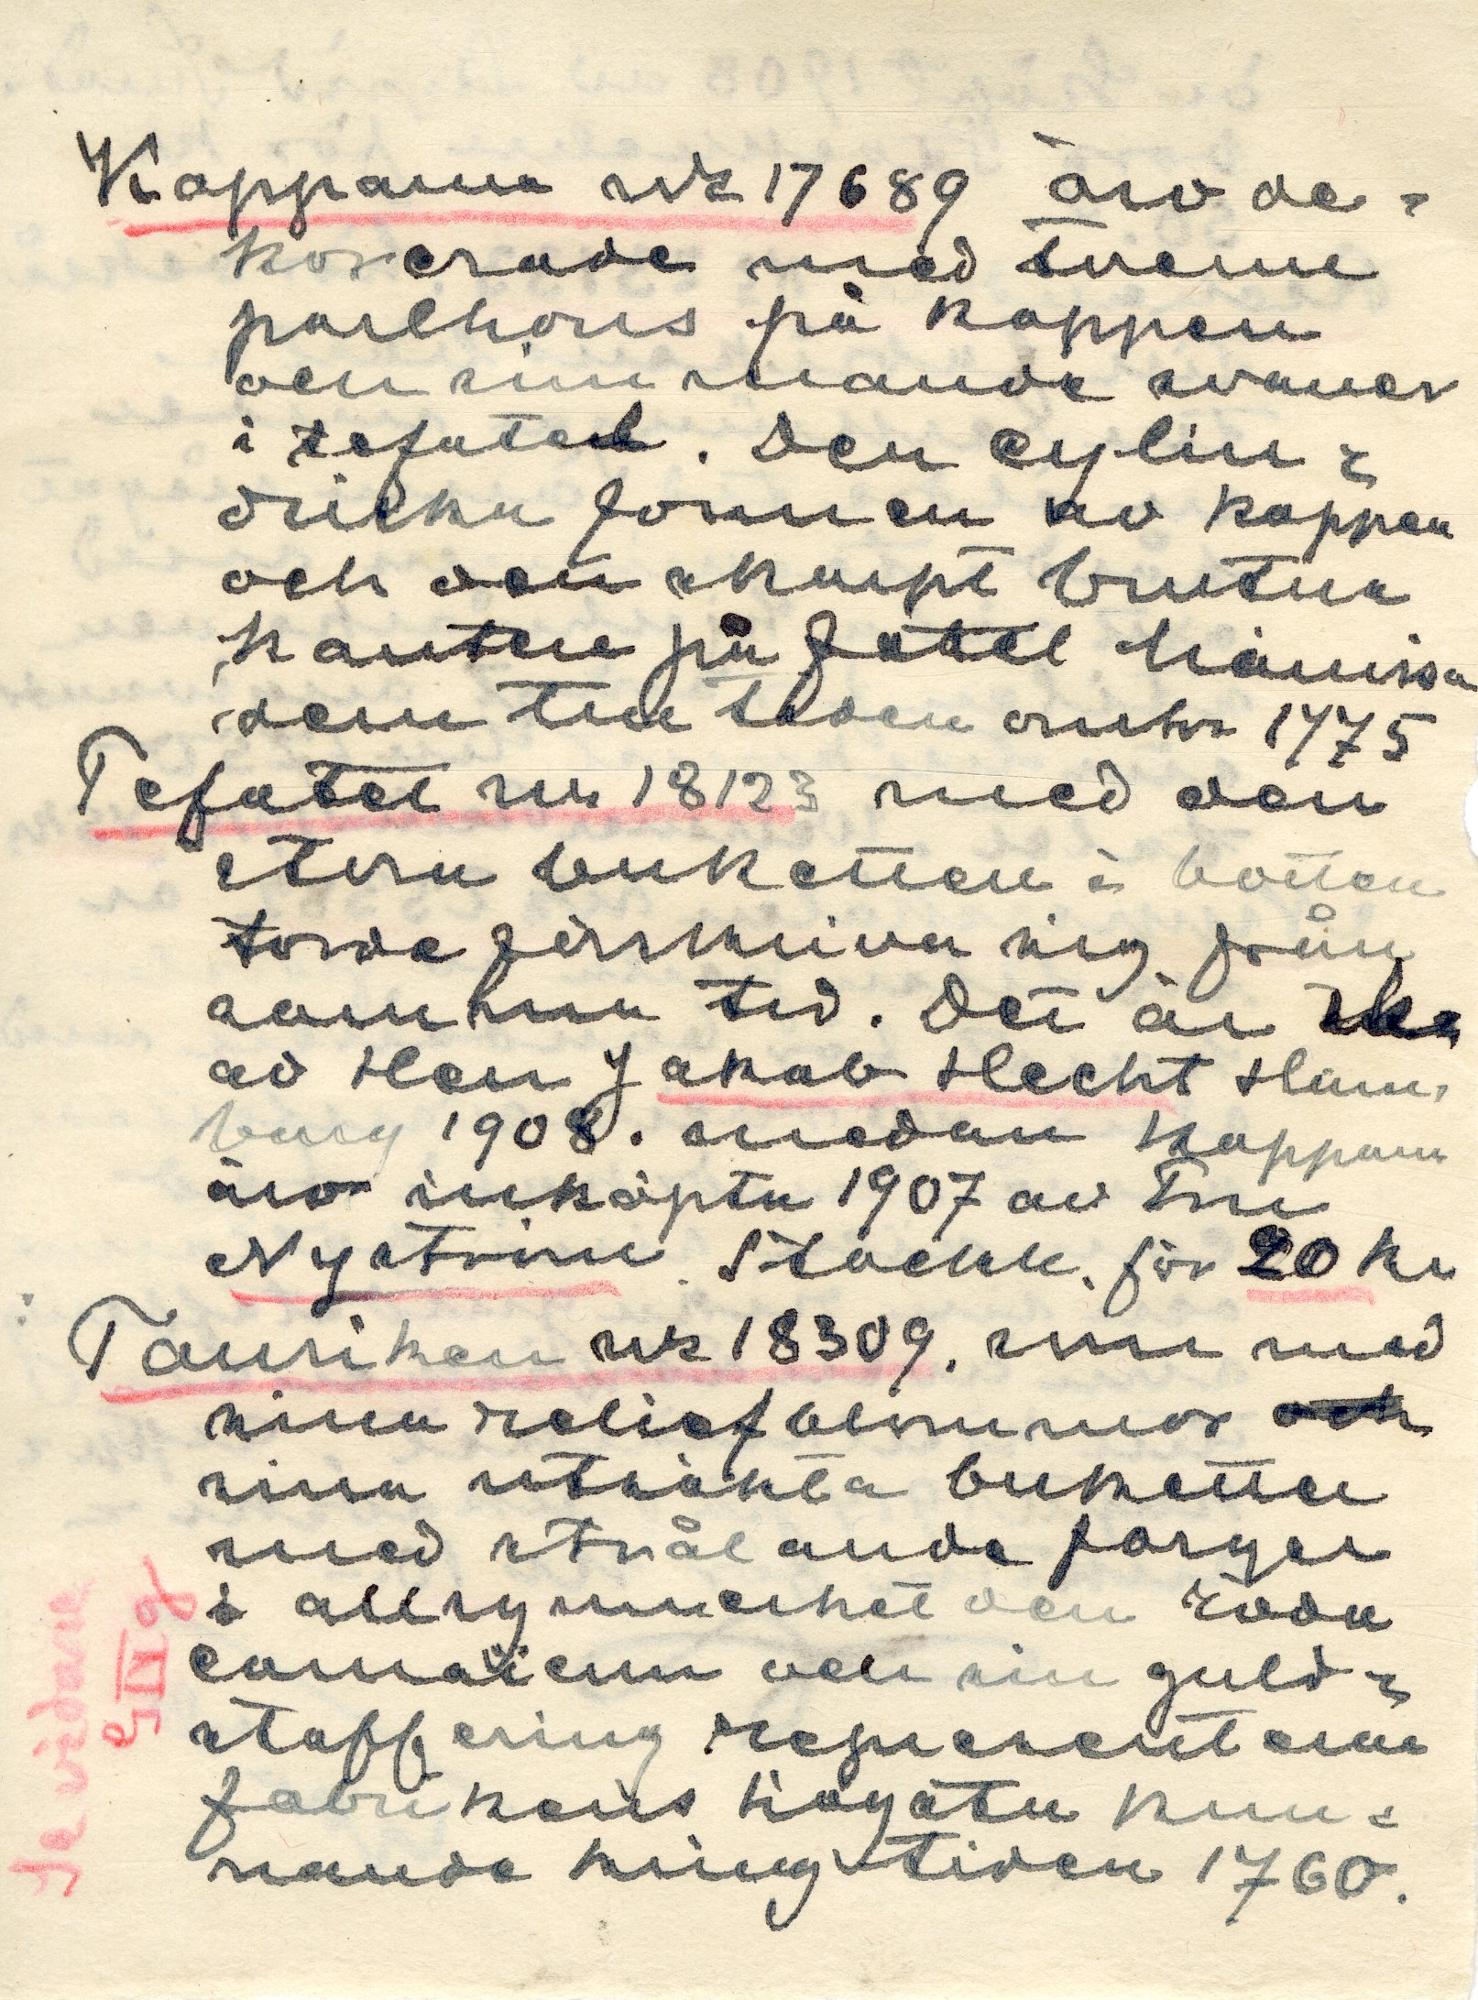 Kopparne nr 17689 äro de-
korerade med tvenne
pailhons på koppen
och simmande svaner
i tefatet. Den cylin-
driska formen av koppen
och den skarpt brutna
kanten på fatet hänvisa
dem till tiden omkr 1775
Tefatet nr 18123 med den
stora buketten i botten
torde förskriva sig från
samma tid. Det är
av Herr Jakob Hecht Ham-
burg 1908. medan kopparne
äro inköpta 1907 av Fru
Nyström. Stockh. för 20 kr
Tallriken nr 18309. som med
sina reliefblommor och
sina utsökta buketter
med strålande färger
i allsynnerhet den röda
camaieun och sin guld-
staffering representerar
fabrikens högsta kun-
nande kring tiden 1760.
Se vidare